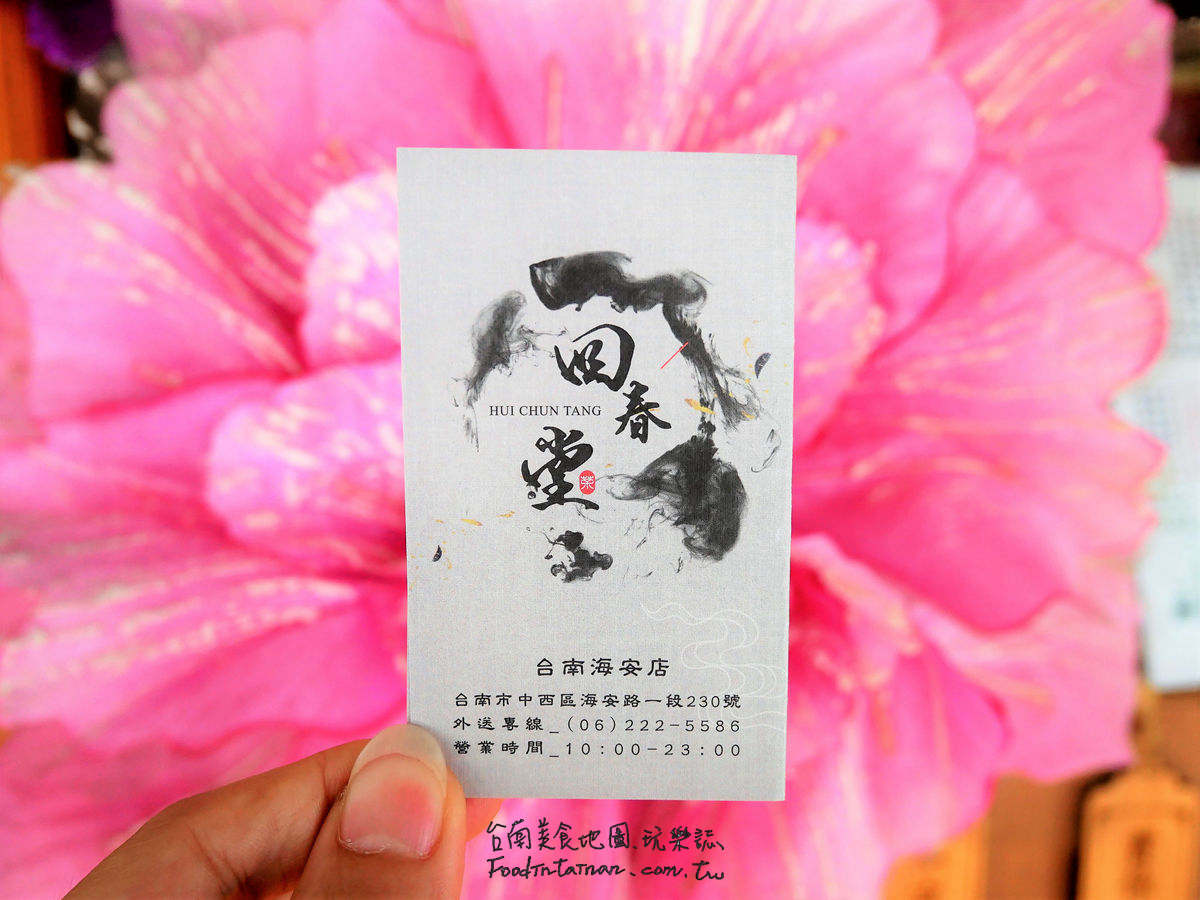 回春堂
HUI CHUN TANG
榮
台南海安店
台南市中西區海安路一段230號
外送專線_(06)222-5586
營業時間_10:00-23:00
台南美食地圖.玩樂誌
FoodInTainan.com.tw